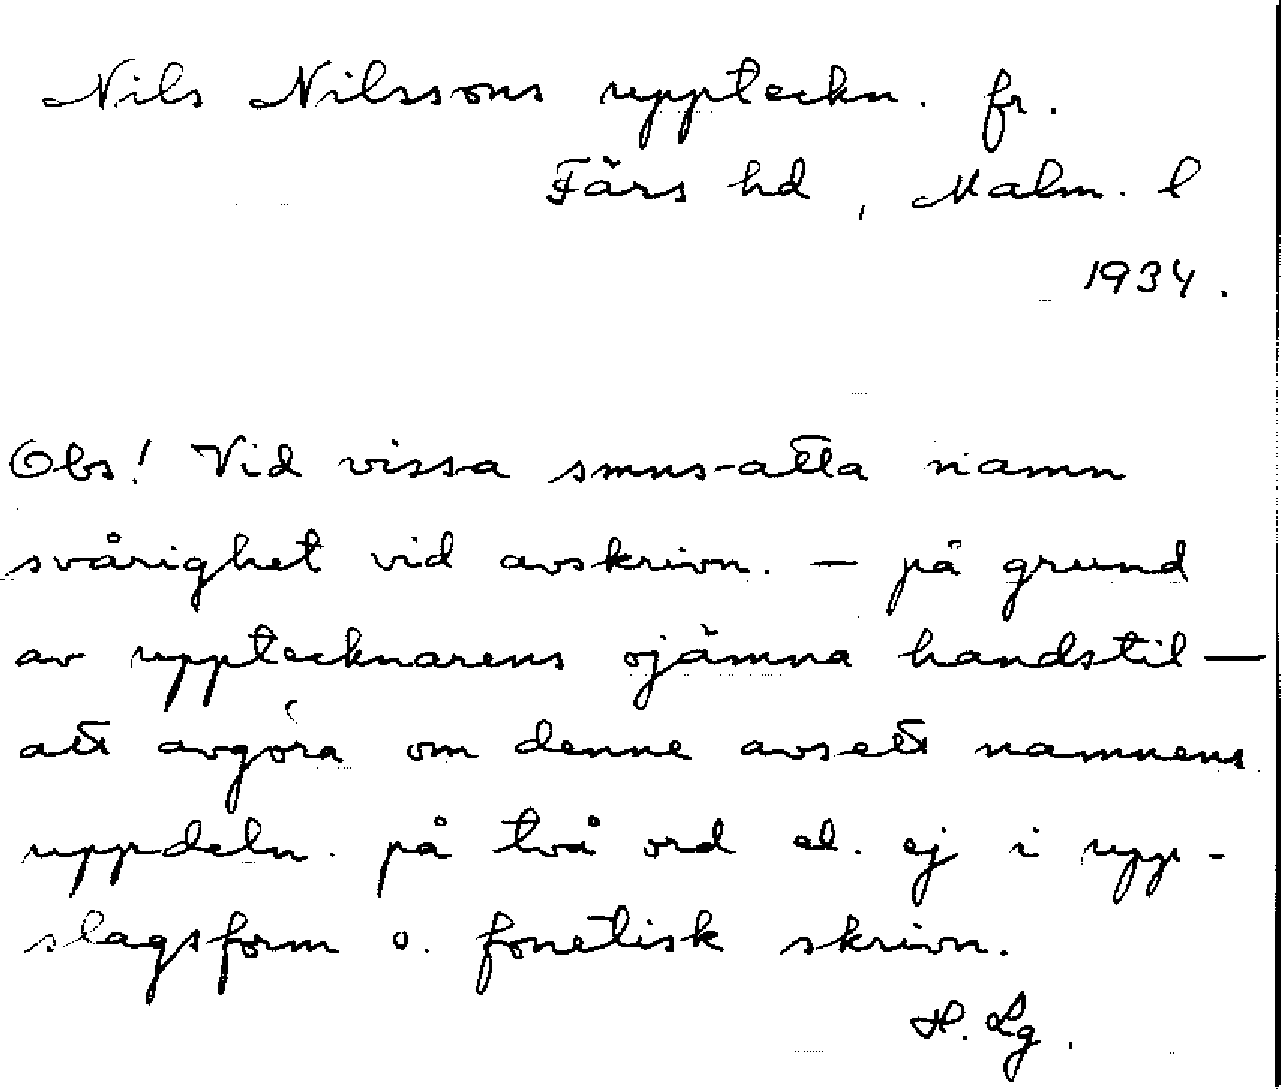 Nils Nilssons uppteckn. fr.
Färs hd, Malm. l
1934.
Obs! Vid vissa smns-atta namn
svårighet vid avskrivn. — på grund
av upptecknarens ojämna handstil —
att avgöra om denne avsett namnens
uppdeln. på två ord el. ej i upp-
slagsform o. fonetisk skrivn.
H. Lg.